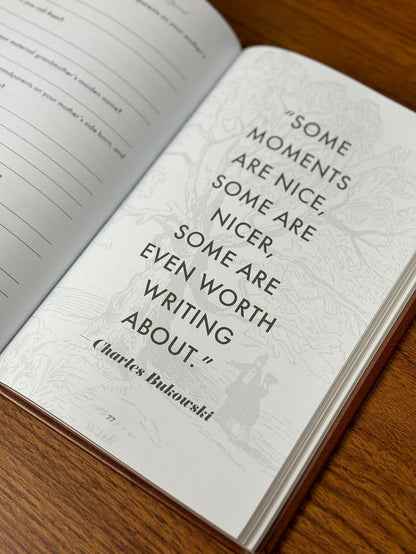 you call them?
parents on your mother's
maternal grandmother's maiden name?
grandparents on your mother's side born, and
"SOME
MOMENTS
ARE NICE,
SOME ARE
NICER,
SOME ARE
EVEN WORTH
WRITING
ABOUT."
Charles Bukowski
77